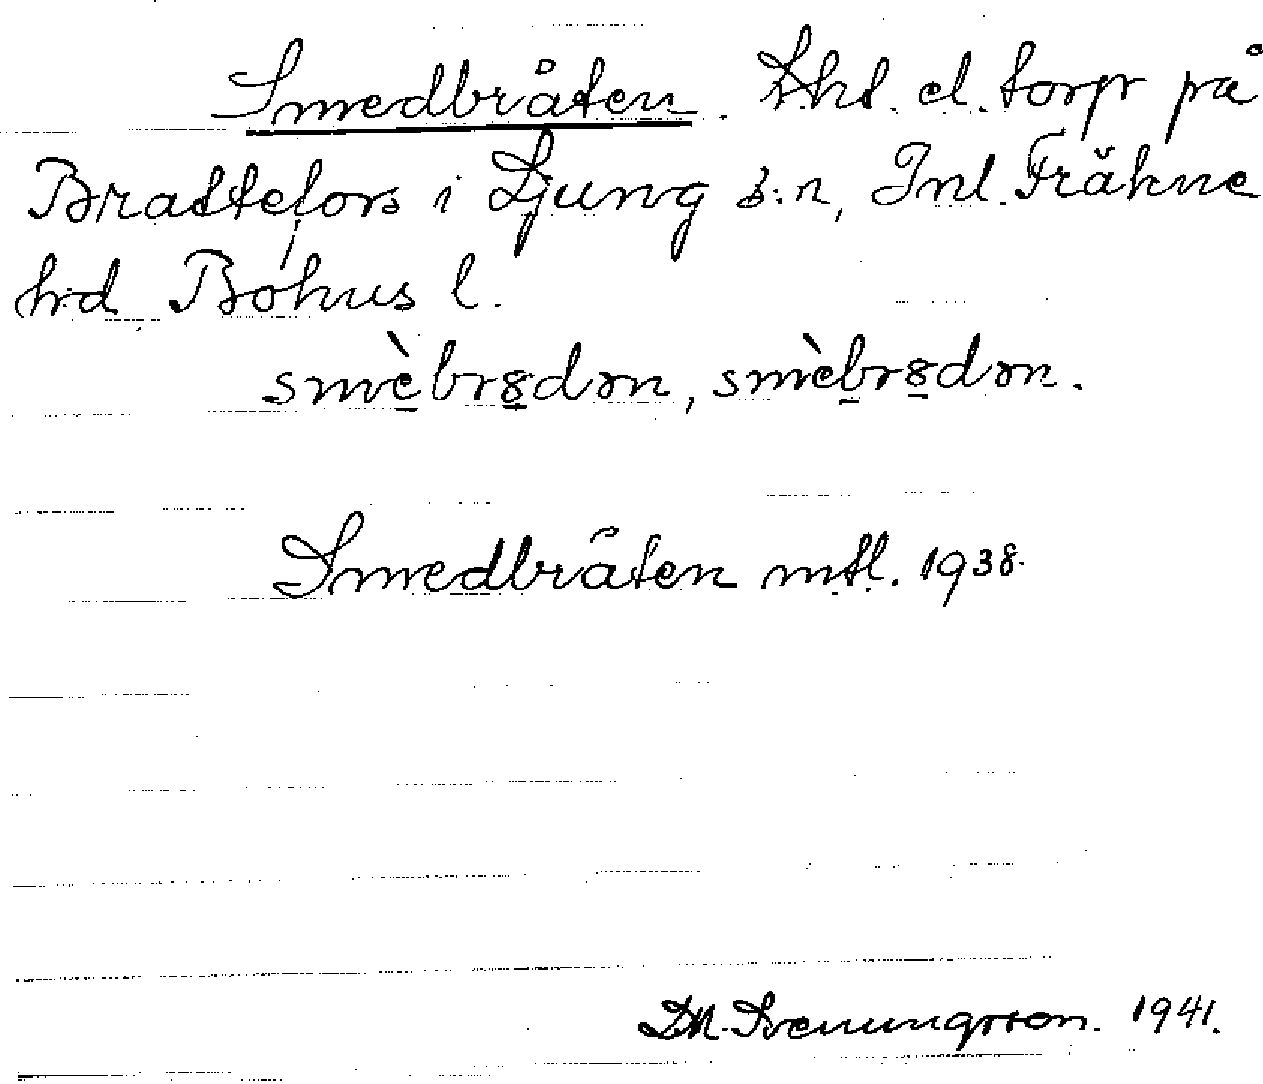 Smedbråten. Lht. el. torp på
Brattefors i Ljung s:n, Inl. Fräkne
hd Bohus l.
smèbrꝏdən, smèbrꝏdən.
Smedbråten mtl. 1938.
D.M. Svenungsson. 1941.